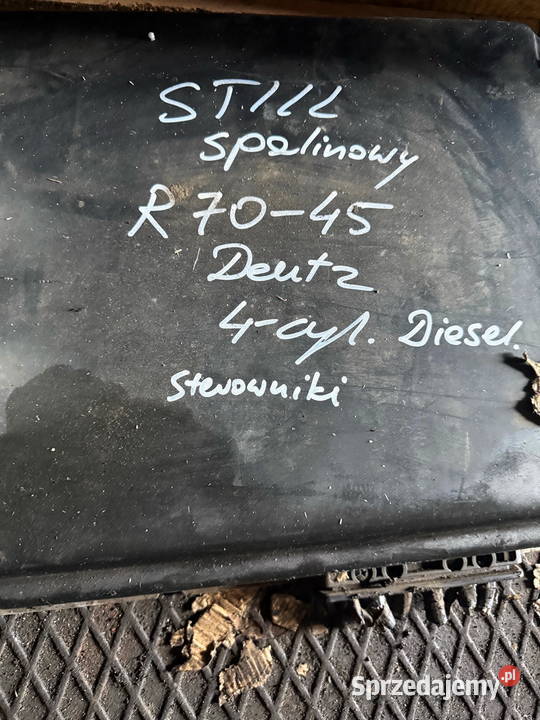 STILL
spalinowy
R 70-45
Deutz
4-cyl. Diesel.
sterowniki
Sprzedajemy.pl